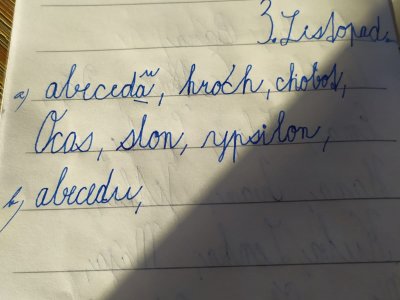 3. Listopad.
a) abeceda, hroch, chobot,
Ocas, slon, ypsilon,
b) abecedu,